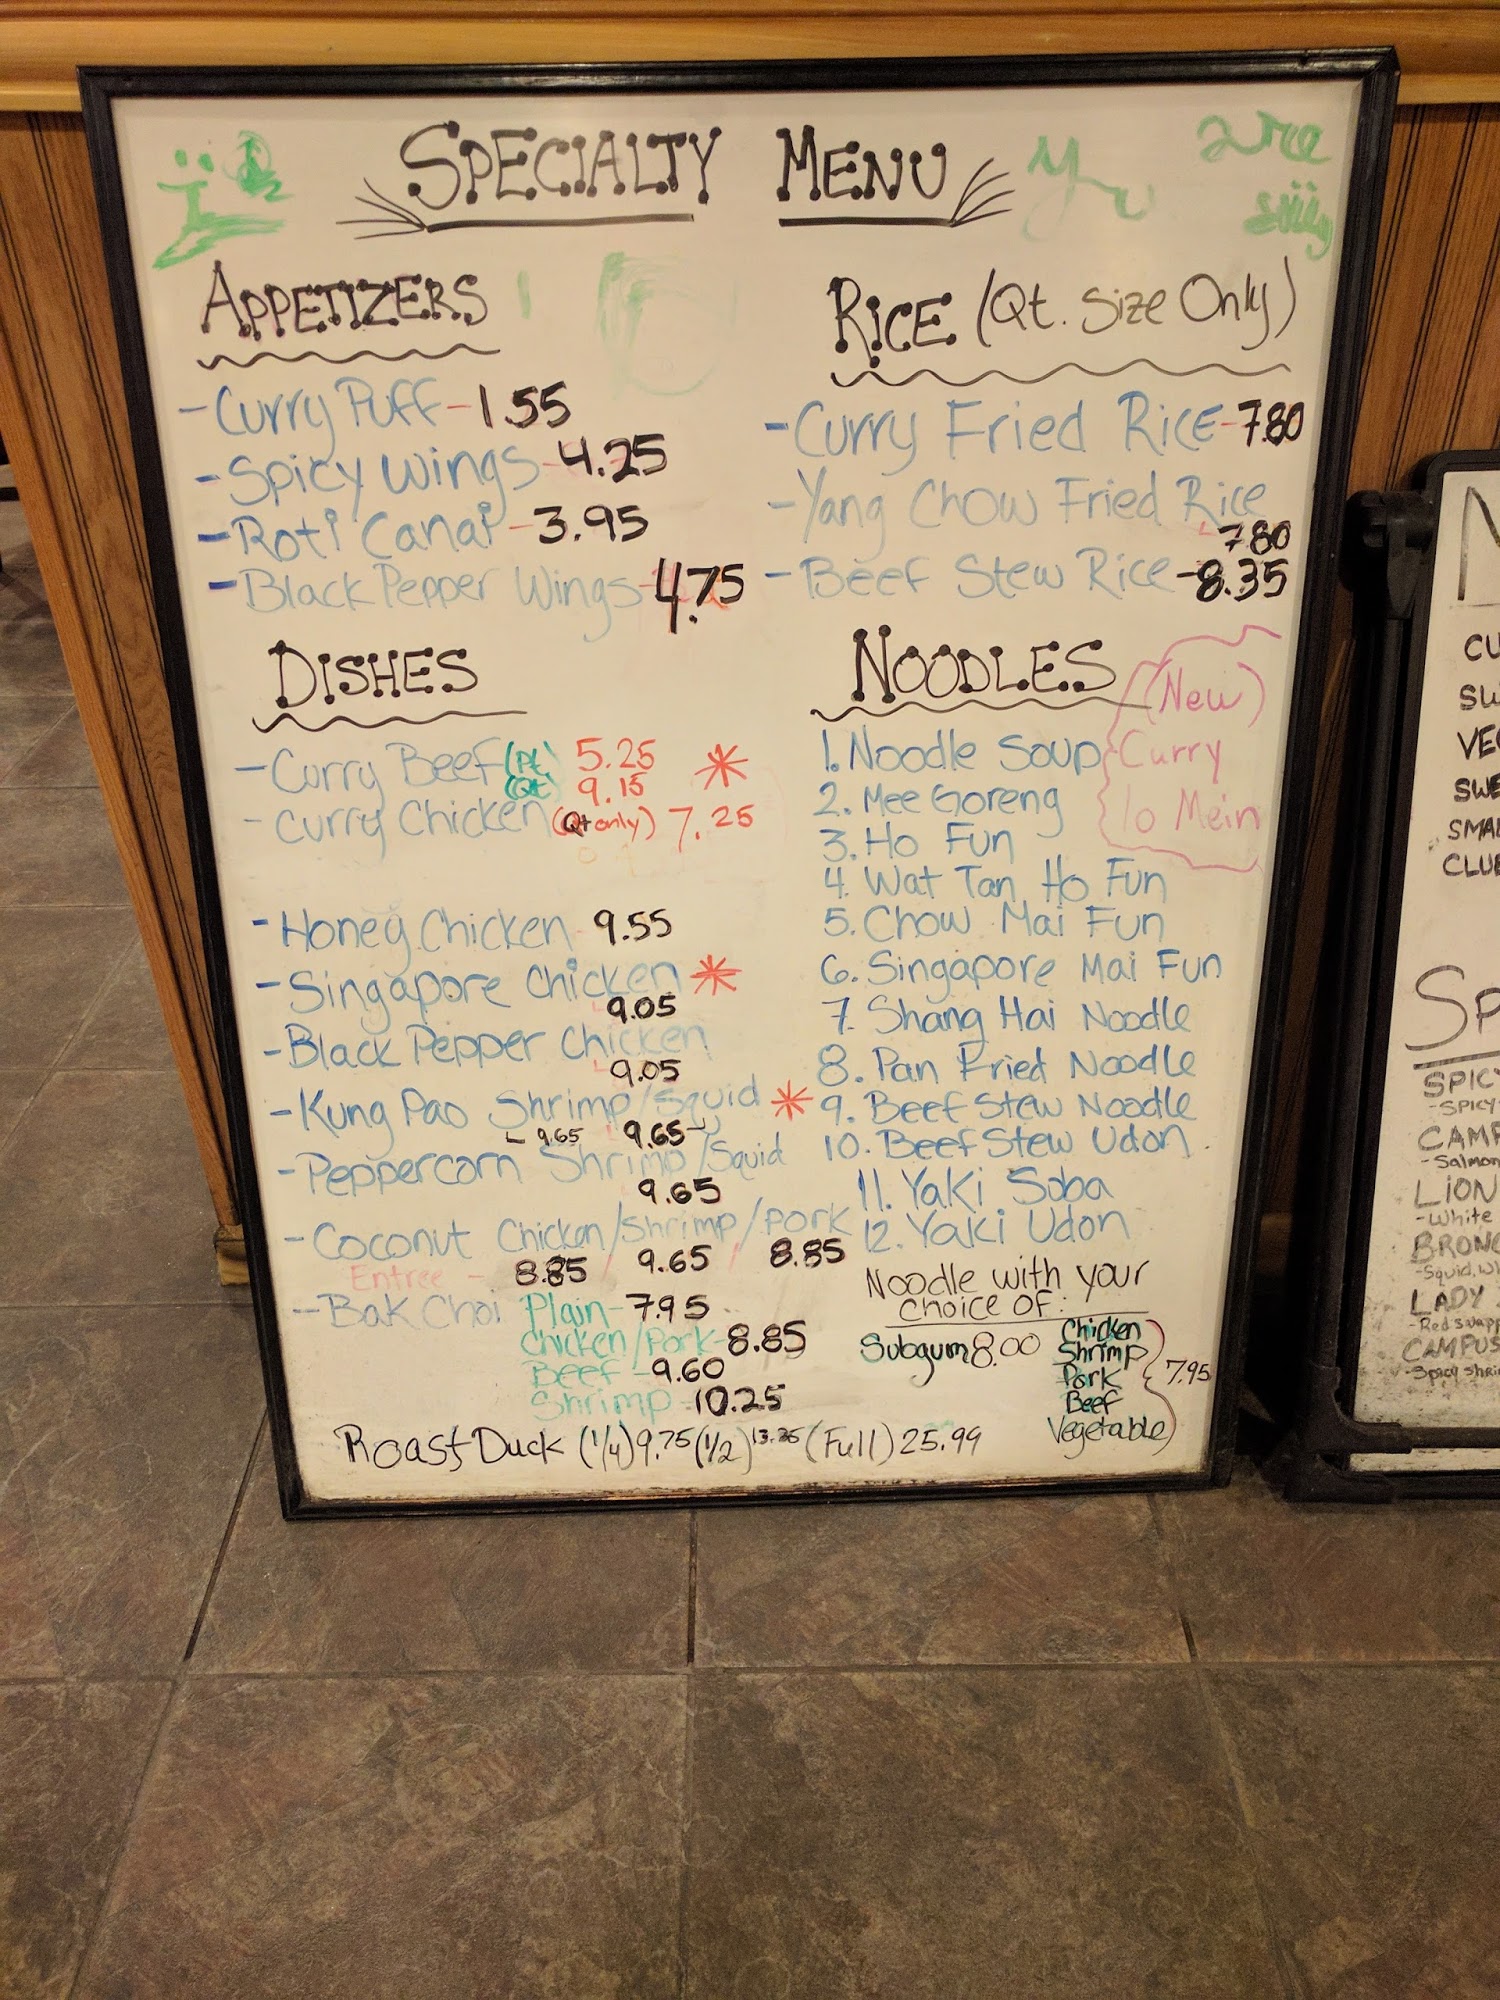 SPECIALTY MENU
APPETIZERS
- Curry Puff - 1.55
- Spicy Wings - 4.25
- Roti Canai - 3.95
- Black Pepper Wings - 4.75
DISHES
- Curry Beef (Pt.) 5.25 *
(Qt) 9.15
- Curry Chicken (Qt only) 7.25
- Honey Chicken 9.55
- Singapore Chicken *
9.05
- Black Pepper Chicken
9.05
- Kung Pao Shrimp/Squid *
9.65 9.65
- Peppercorn Shrimp/Squid
9.65
- Coconut Chicken/Shrimp/Pork
Entree - 8.85 / 9.65 / 8.85
- Bak Choi Plain - 7.95
Chicken/Pork - 8.85
Beef - 9.60
Shrimp - 10.25
Roast Duck (1/4) 9.75 (1/2) (Full) 25.99
RICE (Qt. Size Only)
- Curry Fried Rice - 7.80
- Yang Chow Fried Rice
7.80
- Beef Stew Rice - 8.35
NOODLES
(New)
Curry
lo Mein
1. Noodle Soup
2. Mee Goreng
3. Ho Fun
4. Wat Tan Ho Fun
5. Chow Mai Fun
6. Singapore Mai Fun
7. Shang Hai Noodle
8. Pan Fried Noodle
9. Beef Stew Noodle
10. Beef Stew Udon
11. Yaki Soba
12. Yaki Udon
Noodle with your
choice of:
Subgum 8.00
Chicken
Shrimp
Pork 7.95
Beef
Vegetable
CU
SW
VEG
SWE
SMA
CLUB
SP
SPICY
CAMP
-Salmon
LION
-White
BRONC
LADY
CAMPUS